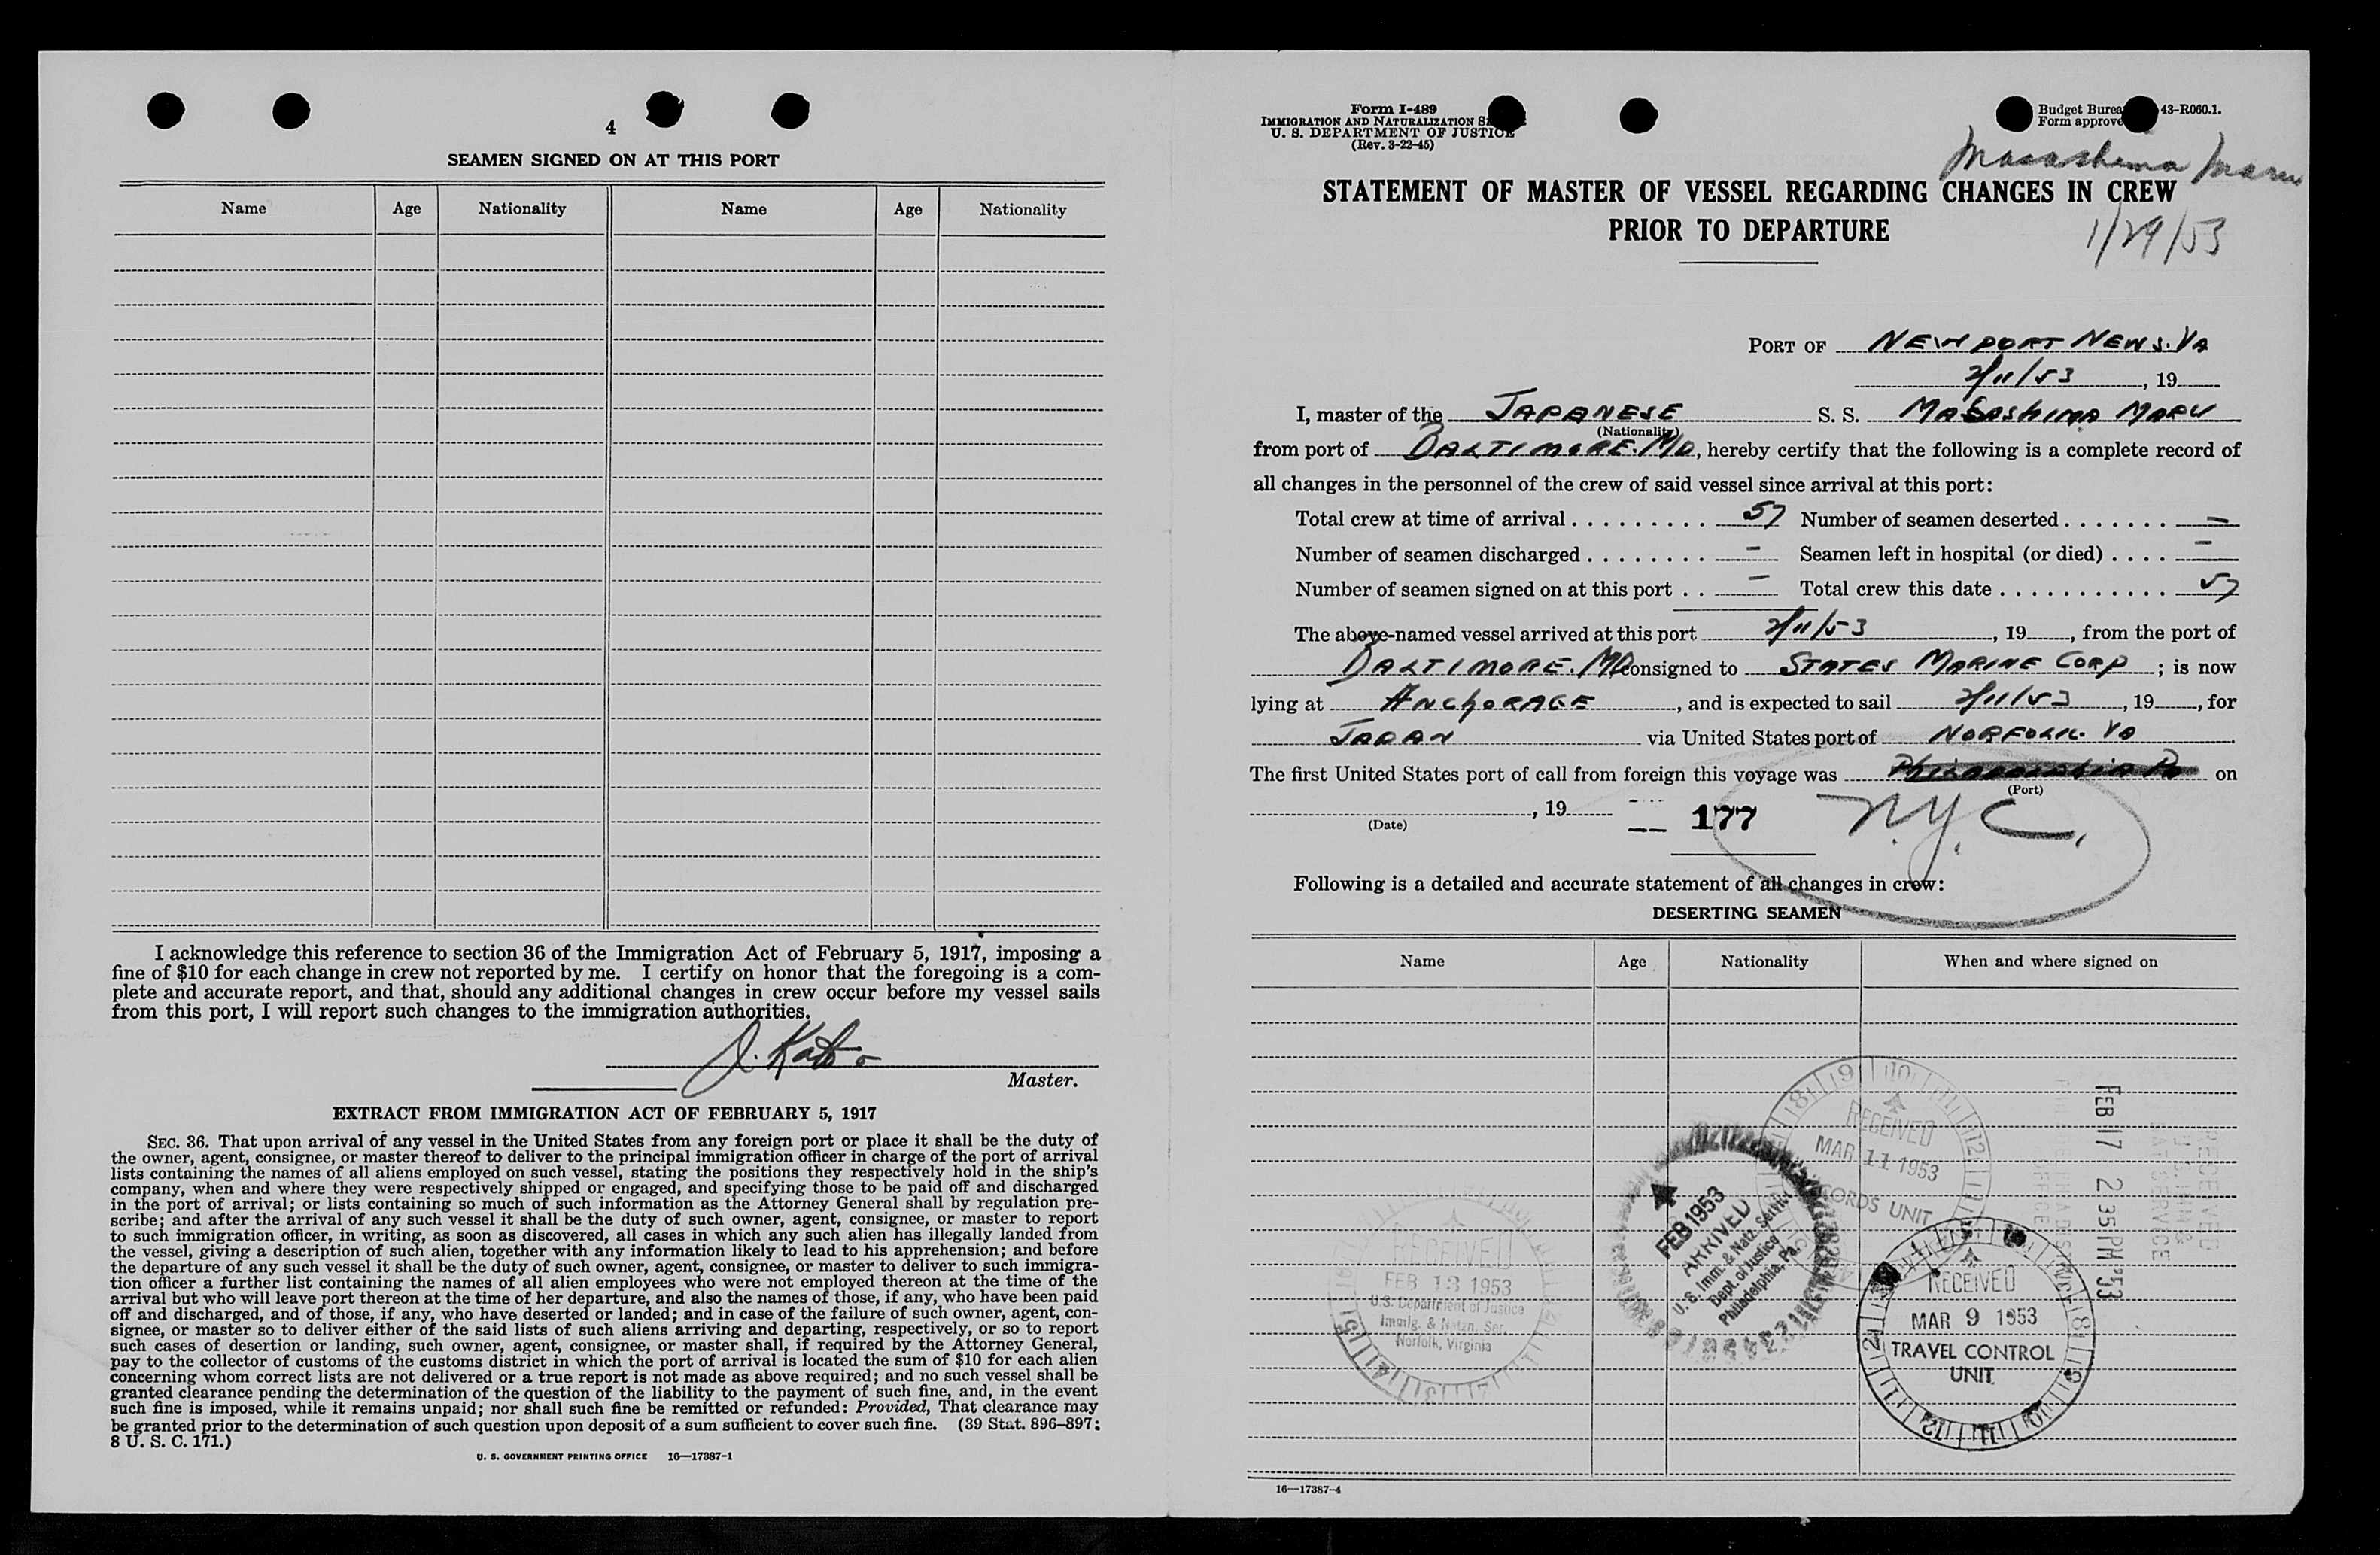 4
SEAMEN SIGNED ON AT THIS PORT
Name Age Nationality Name Age Nationality
I acknowledge this reference to section 36 of the Immigration Act of February 5, 1917, imposing a
fine of $10 for each change in crew not reported by me. I certify on honor that the foregoing is a com-
plete and accurate report, and that, should any additional changes in crew occur before my vessel sails
from this port, I will report such changes to the immigration authorities.
J. Kato
Master.
EXTRACT FROM IMMIGRATION ACT OF FEBRUARY 5, 1917
SEC. 36. That upon arrival of any vessel in the United States from any foreign port or place it shall be the duty of
the owner, agent, consignee, or master thereof to deliver to the principal immigration officer in charge of the port of arrival
lists containing the names of all aliens employed on such vessel, stating the positions they respectively hold in the ship's
company, when and where they were respectively shipped or engaged, and specifying those to be paid off and discharged
in the port of arrival; or lists containing so much of such information as the Attorney General shall by regulation pre-
scribe; and after the arrival of any such vessel it shall be the duty of such owner, agent, consignee, or master to report
to such immigration officer, in writing, as soon as discovered, all cases in which any such alien has illegally landed from
the vessel, giving a description of such alien, together with any information likely to lead to his apprehension; and before
the departure of any such vessel it shall be the duty of such owner, agent, consignee, or master to deliver to such immigra-
tion officer a further list containing the names of all alien employees who were not employed thereon at the time of the
arrival but who will leave port thereon at the time of her departure, and also the names of those, if any, who have been paid
off and discharged, and of those, if any, who have deserted or landed; and in case of the failure of such owner, agent, con-
signee, or master so to deliver either of the said lists of such aliens arriving and departing, respectively, or so to report
such cases of desertion or landing, such owner, agent, consignee, or master shall, if required by the Attorney General,
pay to the collector of customs of the customs district in which the port of arrival is located the sum of $10 for each alien
concerning whom correct lists are not delivered or a true report is not made as above required; and no such vessel shall be
granted clearance pending the determination of the question of the liability to the payment of such fine, and, in the event
such fine is imposed, while it remains unpaid; nor shall such fine be remitted or refunded: Provided, That clearance may
be granted prior to the determination of such question upon deposit of a sum sufficient to cover such fine. (39 Stat. 896–897;
8 U. S. C. 171.)
U. S. GOVERNMENT PRINTING OFFICE 16—17387-1
Form I-489
IMMIGRATION AND NATURALIZATION
U. S. DEPARTMENT OF JUSTICE
(Rev. 3-22-45)
Budget Burea 43-R060.1.
Form approve
Masashima Maru
STATEMENT OF MASTER OF VESSEL REGARDING CHANGES IN CREW
PRIOR TO DEPARTURE
1/29/53
PORT OF NEWPORT NEWS. VA
2/11/53, 19
I, master of the JAPANESE S. S. MASASHIMA MARU
(Nationality)
from port of BALTIMORE. MD, hereby certify that the following is a complete record of
all changes in the personnel of the crew of said vessel since arrival at this port:
Total crew at time of arrival . . . . . . . . . 57 Number of seamen deserted . . . . . . . —
Number of seamen discharged . . . . . . . . — Seamen left in hospital (or died) . . . . —
Number of seamen signed on at this port . . — Total crew this date . . . . . . . . . . . 57
The above-named vessel arrived at this port 2/11/53, 19, from the port of
BALTIMORE. MD consigned to STATES MARINE CORP; is now
lying at ANCHORAGE, and is expected to sail 2/11/53, 19, for
JAPAN via United States port of NORFOLK. VA
The first United States port of call from foreign this voyage was Philadelphia Pa on
(Port)
, 19
(Date)
177
N.Y.C.
Following is a detailed and accurate statement of all changes in crew:
DESERTING SEAMEN
Name Age Nationality When and where signed on
RECEIVED
MAR 11 1953
RECORDS UNIT
FEB 17 2 35 PM '53
FEB 1953
ARRIVED
U. S. Imm. & Natz. Service
Dept. of Justice
Philadelphia, Pa.
RECEIVED
FEB 13 1953
U.S. Department of Justice
Immig. & Natzn. Ser.
Norfolk, Virginia
RECEIVED
MAR 9 1953
TRAVEL CONTROL
UNIT
16—17387-4